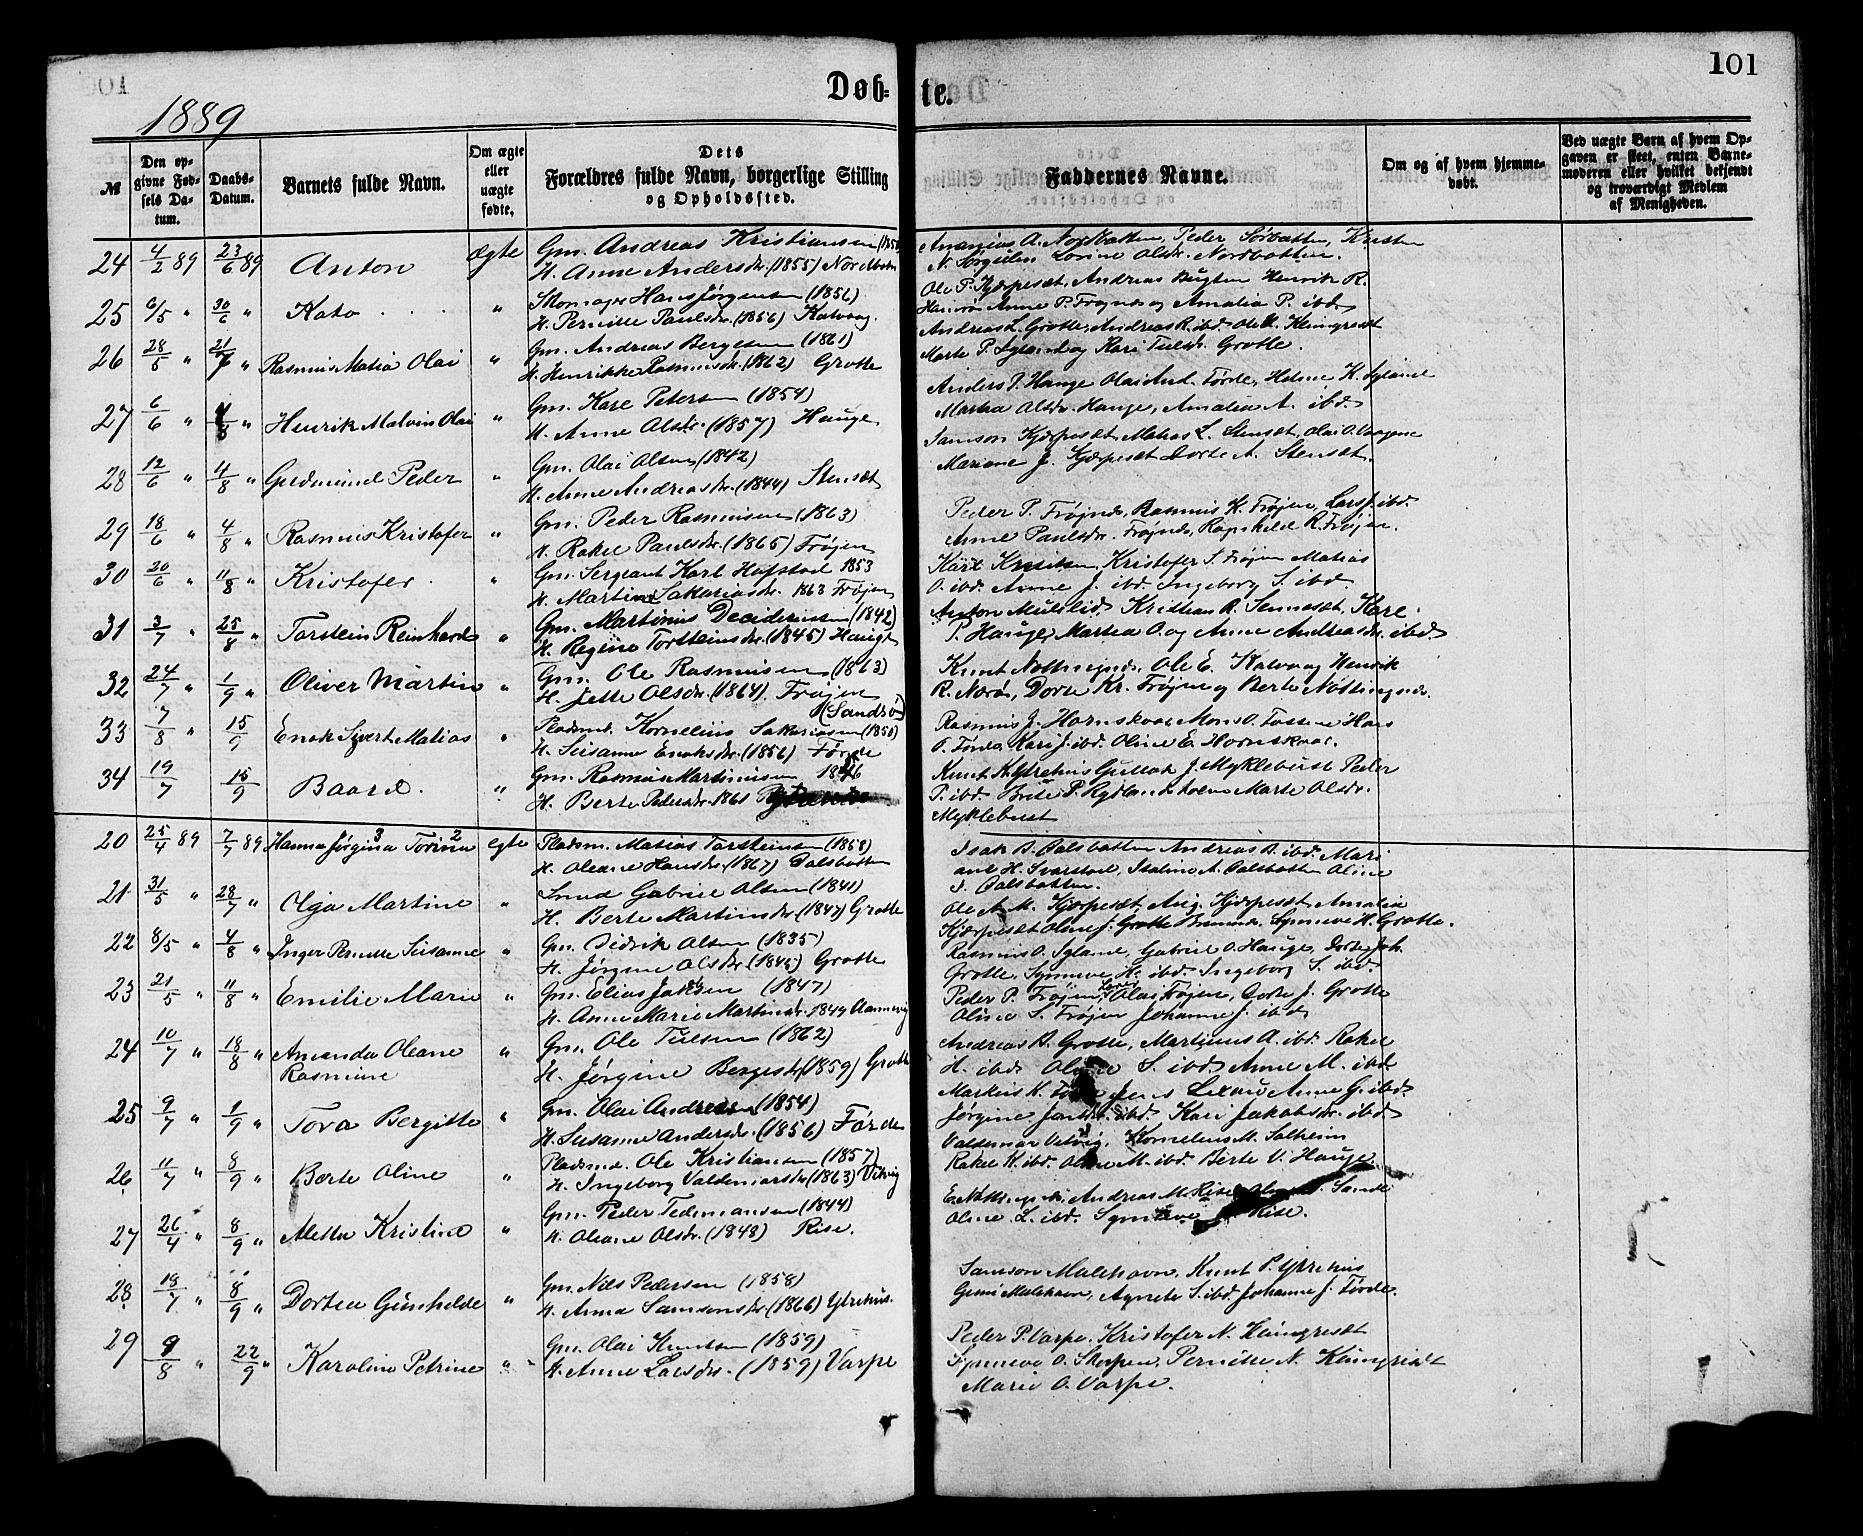 101
Døb-
te.
1889
№
Den op-
givne Fød-
sels Da-
tum.
Daabs-
Datum.
Barnets fulde Navn.
Om ægte
eller
uægte
fødte.
Dets
Forældres fulde Navn, borgerlige Stilling
og Opholdssted.
Faddernes Navne.
Om og af hvem hjemme-
døbt.
Ved uægte Barn af hvem Op-
gaven er skeet, enten Barne-
moderen eller hvilket bekjendt
og troværdigt Medlem
af Menigheden.
24 4/2 89 23/6 89 Anton ægte Gm. Andreas Kristiansen
H. Anne Andersdr. (1855)
Peder Sørbotten, Kristen
Lovise Olsdr. Nordbotten.
25 6/5 " 30/6 " Kato " Skomager Hans Jørgensen (1856)
H. Pernille Paulsdr. (1856) Kalvaag.
Ole P. Kjærpesæt, Andreas Bugten Henrik R.
Anne P. Frøynes og Amalia P. ibd.
26 28/5 " 21/7 " Rasmus Matia Olai " Gm. Andreas Bergesen (1861)
H. Henrikke Rasmusdr. (1862) Grotle
Andreas L. Grotle, Andreas R. ibd. Ole
Marte P. Igland og Kari Tulsdr. Grotle.
27 6/6 " 4/8 " Henrik Malvin Olai " Gm. Kare Petersen (1854)
H. Anne Olsdr. (1857) Hauge
Anders P. Hauge Olai And. Førde, Helene K. Igland
Martha Olsdr. Hauge, Amalia A. ibd.
28 12/6 " 4/8 " Gudmund Peder " Gm. Olai Olsen (1842)
H. Anne Andreasdr. (1844) Stensæt
Samson Kjærpesæt, Matias L. Stensæt, Olai O. Vaagene
Mariane J. Kjærpesæt Dorte A. Stensæt.
29 18/6 " 4/8 " Rasmus Kristofer " Gm. Peder Rasmusen (1863)
H. Rakel Paulsdr. (1865) Frøjen
Peder P. Frøjnes, Rasmus K. Frøjen, Lars J. ibd.
Anne Paulsdr. Frøjnes, Ragnhild R. Frøjen.
30 20/6 " 11/8 " Kristofer " Gm. Sergeant Karl Hafstad 1853
H. Martine Sakariasdr. 1863 Frøjen
Karl Knutsen, Kristofer S. Frøjen Matias
O. ibd. Anne J. ibd. Ingeborg S. ibd.
31 3/7 " 25/8 " Torstein Reinhard " Gm. Martinus Desideriusen (1842)
H. Regine Torsteinsdr. (1845) Hauge
Anton Mulelid, Kristian R. Sennesæt, Kare
P. Hauge, Martha O. og Anne Andreasdr. ibd.
32 24/7 " 1/9 " Oliver Martin " Gm. Ole Rasmusen (1863)
H. Jette Olsdr. (1864) Frøjen
Knut Nøttingnes, Ole E. Kalvaag Henrik
R. Norø, Dorte Kr. Frøjen og Berte Nøttingnes.
(Sandsø)
33 7/8 " 15/9 Enok Sjvert Matias " Pladsmd. Kornelius Sakariasen (1850)
H. Susanne Enoksdr. (1856) Førde
Rasmus J. Hornskaar, Mons O. Hans
P. Førde, Kari J. ibd. Oline E. Hornskaar.
34 19/7 15/9 Baard. " Gm. Rasmus Martinusen
H. Berte Pedersdr. 1861
Knut K. Ytrehus Gullak J. Myklebust Peder
P. ibd. Brite P. Rydland Marte Olsdr.
Myklebust
20 25/4 89 7/7 89 Hanna Jørgina 3 Torina 2 egte Pladsm. Matias Torsteinsen (1868)
H. Oleane Hansdr. (1867) Dalsbotten
Isak B. Dalsbotten Andreas B. ibd. Mari
ane H. Svarstad, Italine A. Dalsbotten Oline
I. Dalsbotten.
21 31/5 " 28/7 " Olga Martine " Smed Gabriel Olsen (1841)
H. Berte Martinsdr. (1847) Grotle
Ole A. M. Kjærpesæt, Aug. Kjærpesæt, Amalia
Kjærpesæt Oline J. Grotle Synneve H. Grotle.
22 8/5 " 4/8 " Inger Pernelle Susanne " Gm. Didrik Olsen (1835)
H. Jørgine Olsdr. (1845) Grotle
Rasmus O. Igland, Gabriel O. Hauge, Dorte Joh.
Grotle, Synneve H. ibd. Ingeborg S. ibd.
23 21/5 " 11/8 " Emilie Marie " Gm. Elias Jakobsen (1847)
H. Anne Marie Martinsdr. 1849 Hamnevig
Peder P. Frøjen, Olai Frøjen, Dorte J. Grotle
Oline S. Frøjen Johanne J. ibd.
24 10/7 " 18/8 " Amanda Oleane
Rasmine " Gm. Ole Tulsen (1862)
H. Jørgine Bergesdr. (1859) Grotle
Andreas B. Grotle, Martinus A. ibd. Rakel
H. ibd. S. ibd. Anne M. ibd.
25 9/7 " 1/9 " Tova Bergitte " Gm. Olai Andreasen (1854)
H. Susanne Andersdr. (1856) Førde
Markus K. Førde Jens Anne G. ibd.
Jørgine ibd. Kari Jakobsdr. ibd.
26 11/7 " 8/9 " Berte Oline " Pladsmd. Ole Kristiansen (1857)
H. Ingeborg Valdemarsdr. (1863) Vetvig
Valdemar Vetvig, Kornelius M. Solheim
Rakel K. ibd. M. ibd. Berte V. Hauge
27 26/4 " 8/9 " Metta Kristine " Gm. Peder Tedemansen (1844)
H. Oleane Olsdr. (1848) Rise.
E. Nøttingnes, Andreas M. Rise, Sande
Oline L. ibd. Synneve Rise.
28 18/7 " 8/9 " Dortea Gunhilde " Gm. Nils Pedersen (1858)
H. Anna Samsonsdr. (1866) Ytrehus.
Samson Malehavn, Knut P. Ytrehus
Gjemi Malehavn, Agnete S. ibd. Johanne J. Førde.
29 9/8 " 22/9 " Karoline Petrine " Gm. Olai Knutsen (1859)
H. Anne Larsdr. (1859) Varpe
Peder P. Varpe, Kristofer N. Kleingresæt
Synneve O. Skorpen, Pernille N.
Marie O. Varpe.